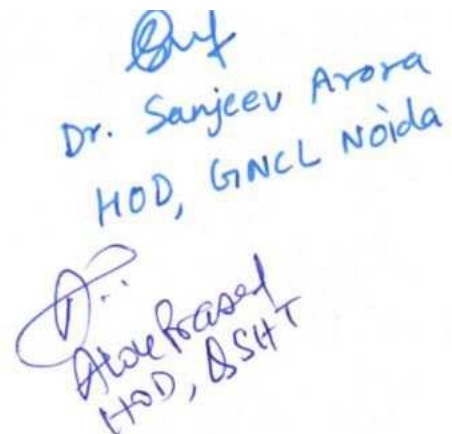 Dr. Sanjeev Arora
HOD, GNCL Noida
Prasad
HOD,